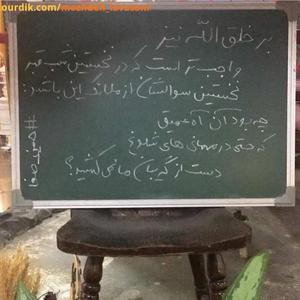 ourdik.com/mashgh_lavasani
بر خلق اللّه نیز
واجب‌تر است که در نخستین شب قبر
نخستین سوالشان از ملائک این باشد:
چه بود آن آه عمیق
که حتی در مهمانی های شلوغ
دست از گریبان ما نمی کشید؟